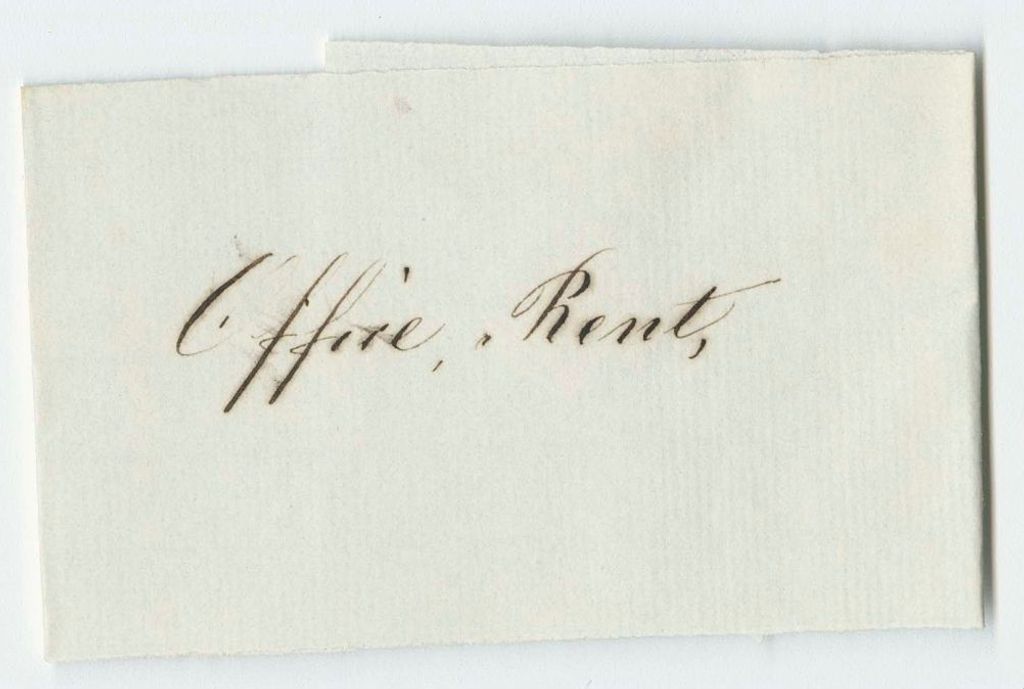 Office, Rent,